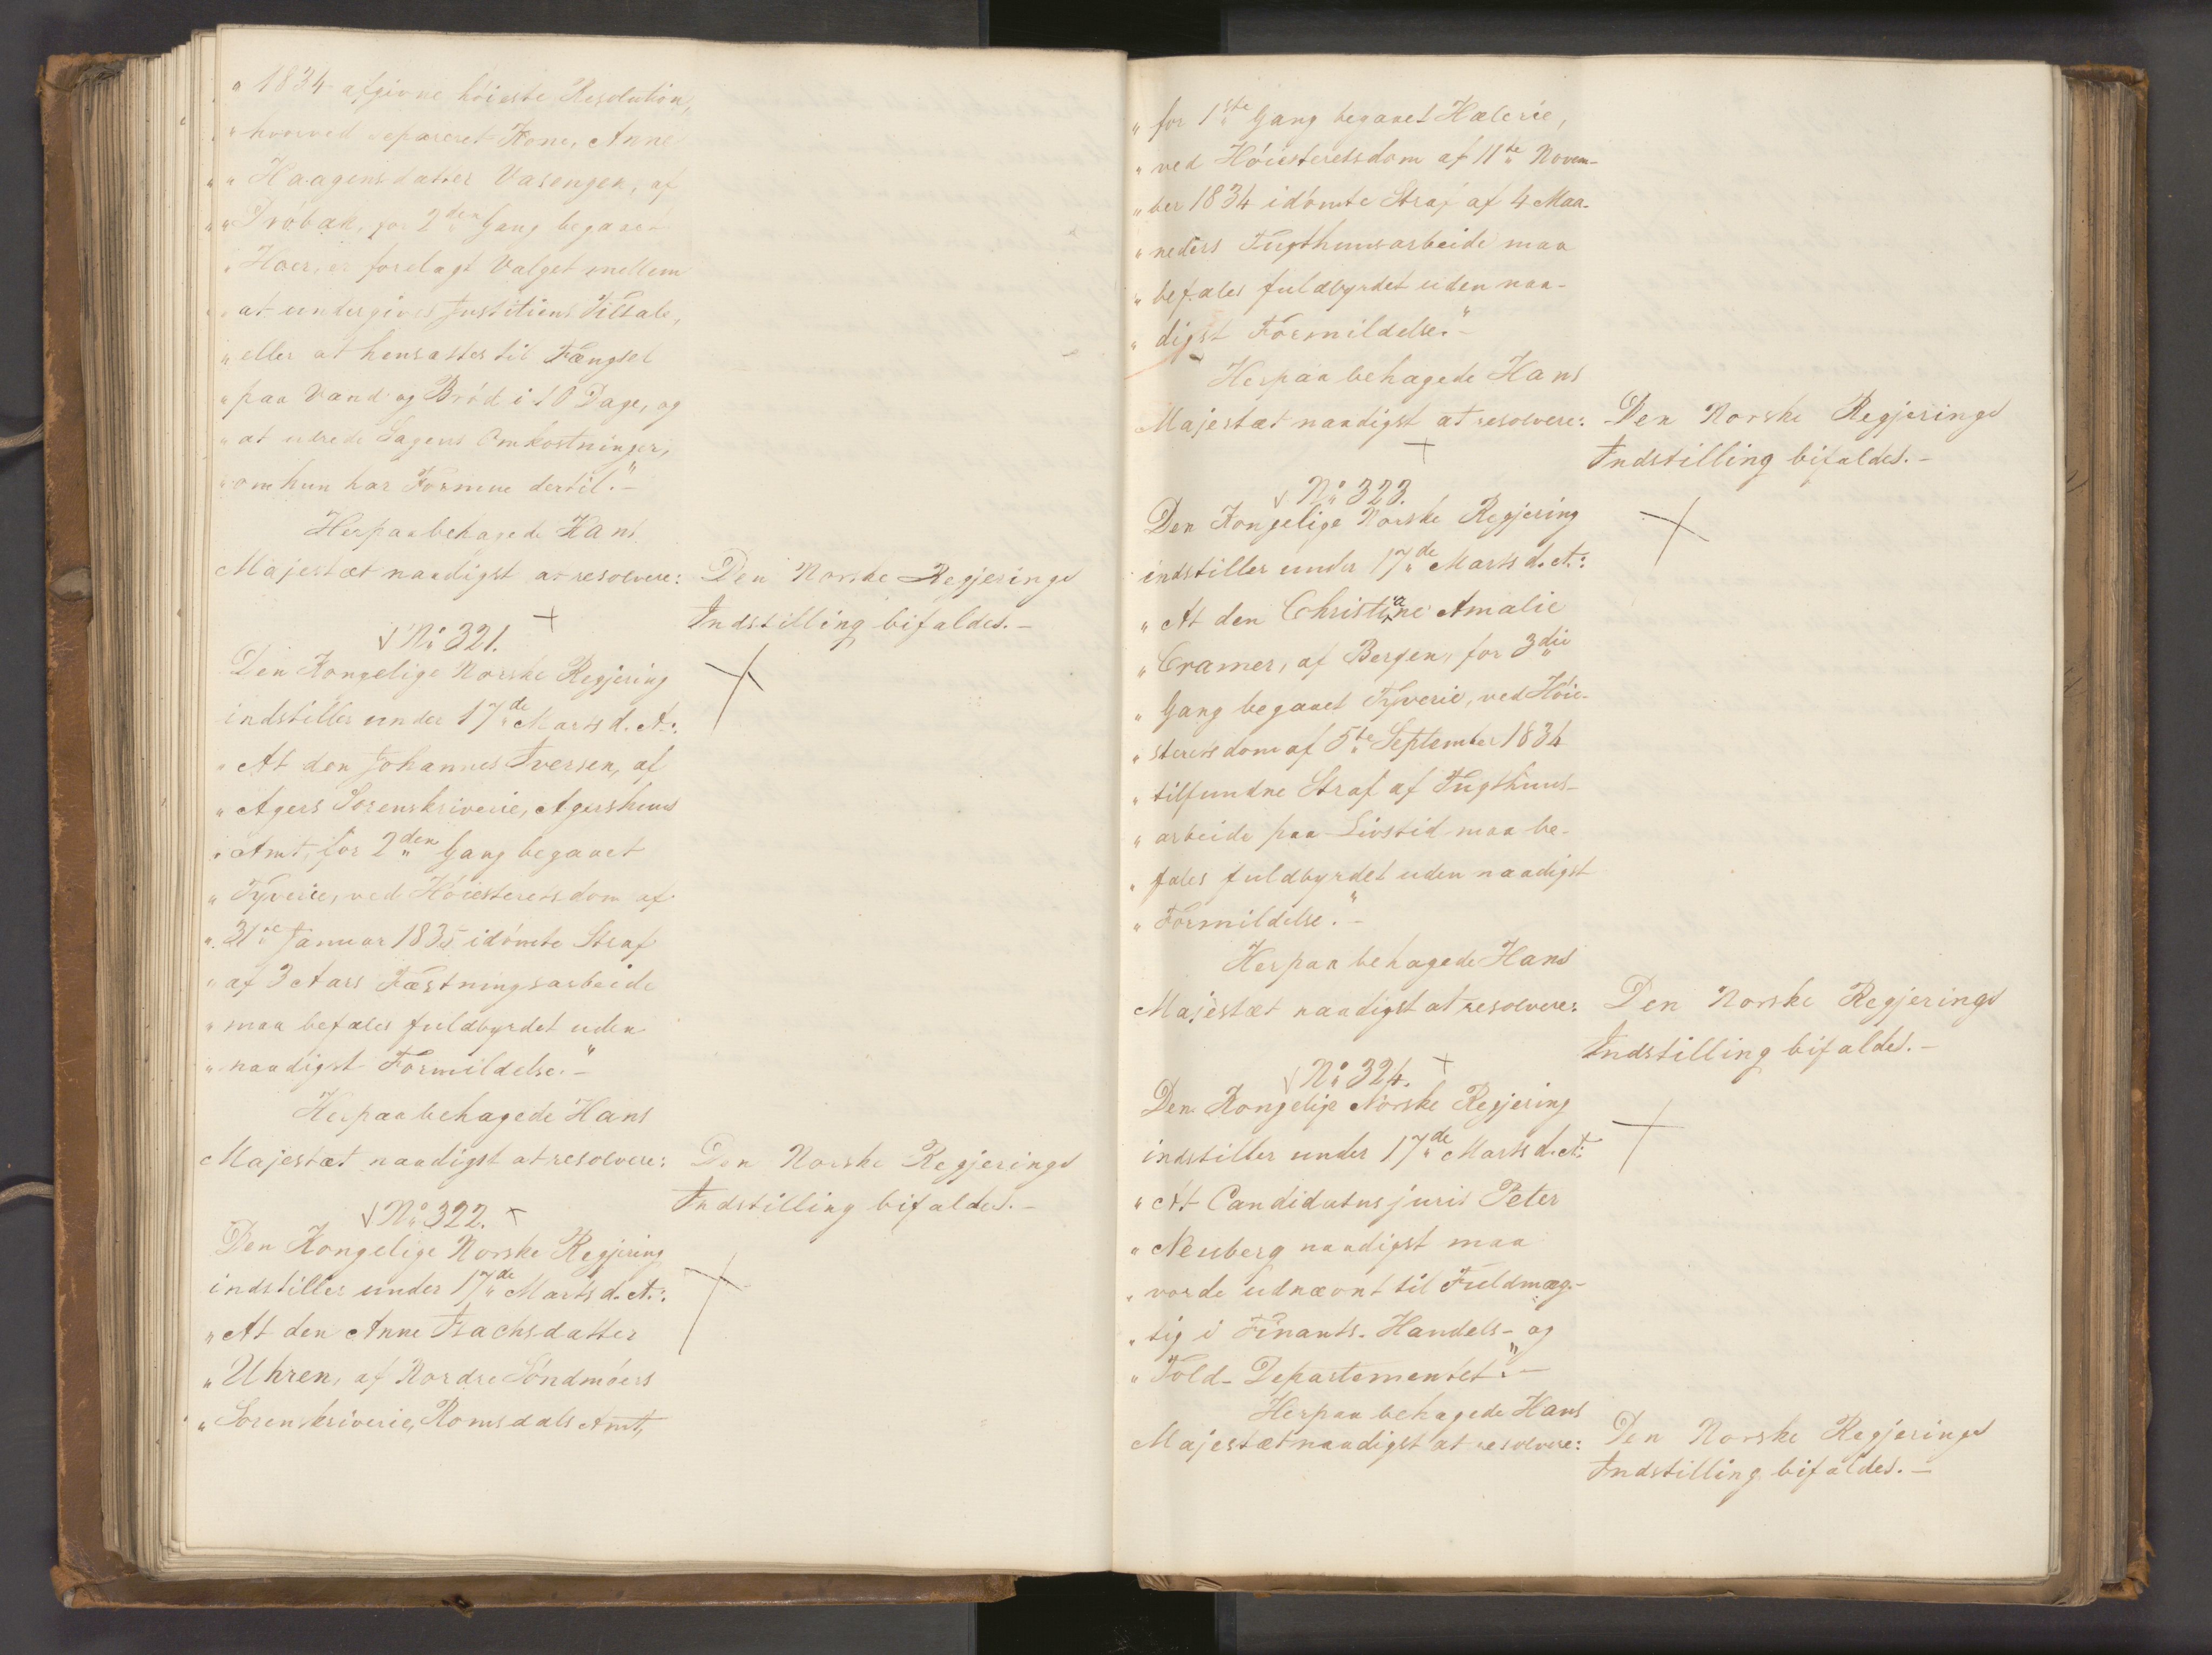 „ 1834 afgivne høieste Resolution,
„ hvorved separeret Kone, Anne
„ Haagensdatter Vasengen, af
„ Drøbak, for 2den Gang begaaet
„ Hoer, er forelagt Valget mellem
„ at undergives Justitiens Tiltale,
„ eller at hensættes til Fængsel
„ paa Vand og Brød i 10 Dage, og
„ at udrede Sagens Omkostninger,
„ om hun har Formue dertil."-
Herpaa behagede Hans
Majestæt naadigst at resolvere:
Den Norske Regjerings
Indstilling bifaldes.-
No 321.
Den Kongelige Norske Regjering
indstiller under 17de Marts d. A.:
„ At den Johannes Iversen, af
„ Agers Sorenskriverie, Agershuus
„ Amt, for 2den Gang begaaet
„ Tyverie, ved Høiesteretsdom af
„ 31te Januar 1835 idømte Straf
„ af 3 Aars Fæstningsarbeide
„ maa befales fuldbyrdet uden
„ naadigst Formildelse."-
Herpaa behagede Hans
Majestæt naadigst at resolvere:
Den Norske Regjerings
Indstilling bifaldes.-
No 322.
Den Kongelige Norske Regjering
indstiller under 17de Marts d. A.:
„ At den Anne Isachsdatter
„ Uhren, af Nordre Søndmøers
„ Sorenskriverie, Romsdals Amt,
„ for 1ste Gang begaaet Hælerie,
„ ved Høiesteretsdom af 11te Novem-
„ ber 1834 idømte Straf af 4 Maa-
„ neders Tugthuusarbeide maa
„ befales fuldbyrdet uden naa-
„ digst Formildelse."-
Herpaa behagede Hans
Majestæt naadigst at resolvere:
Den Norske Regjerings
Indstilling bifaldes.-
No 323.
Den Kongelige Norske Regjering
indstiller under 17de Marts d. A.:
„ At den Christiane Amalie
„ Cramer, af Bergen, for 3die
„ Gang begaaet Tyverie, ved Høie-
„ steretsdom af 5te September 1834
„ tilfundne Straf af Tugthuus-
„ arbeide paa Livstid maa be-
„ fales fuldbyrdet uden naadigst
„ Formildelse."-
Herpaa behagede Hans
Majestæt naadigst at resolvere:
Den Norske Regjerings
Indstilling bifaldes.-
No 324.
Den Kongelige Norske Regjering
indstiller under 17de Marts d. A:
„ At Candidatus juris Peter
„ Neuberg naadigst maa
„ vorde udnævnt til Fuldmæg-
„ tig i Finants- Handels- og
„ Told- Departementet."-
Herpaa behagede Hans
Majestæt naadigst at resolvere:
Den Norske Regjerings
Indstilling bifaldes.-